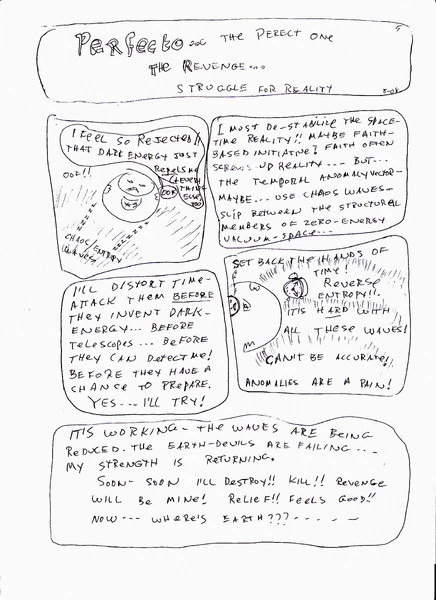 Perfecto... THE PERECT ONE
THE REVENGE...
STRUGGLE FOR REALITY
5
I FEEL SO REJECTED!!
THAT DARK ENERGY JUST
REPELS ME
OOF!!
OOF
(EVERY
THING
ELSE
TOO
CHAOS/ENTROPY
WAVES
I MUST DE-STABILIZE THE SPACE-
TIME REALITY!! MAYBE FAITH-
BASED INITIATIVE? FAITH OFTEN
SCREWS UP REALITY--- BUT...
THE TEMPORAL ANOMALYVECTOR-
MAYBE... USE CHAOS WAVES-
SLIP BETWEEN THE STRUCTURAL
MEMBERS OF ZERO-ENERGY
VACUUM-SPACE---
I'LL DISTORT TIME-
ATTACK THEM BEFORE
THEY INVENT DARK-
ENERGY... BEFORE
TELESCOPES ... BEFORE
THEY CAN DETECT ME!
BEFORE THEY HAVE A
CHANCE TO PREPARE.
YES--- I'LL TRY!
SET BACK THE HANDS OF
TIME!
REVERSE
ENTROPY!!
IT'S HARD WITH
ALL THESE WAVES!
CAN'T BE ACCURATE!
ANOMALIES ARE A PAIN!
IT'S WORKING- THE WAVES ARE BEING
REDUCED. THE EARTH-DEVILS ARE FAILING...
MY STRENGTH IS RETURNING.
SOON- SOON I'LL DESTROY!! KILL!! REVENGE
WILL BE MINE! RELIEF!! FEELS GOOD!!
NOW--- WHERE'S EARTH???- - - - -